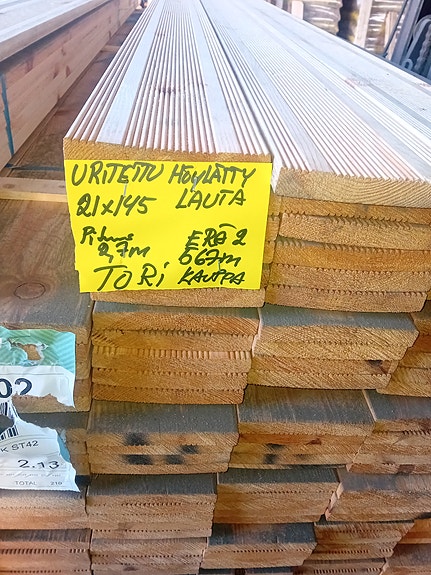 URITETTU HÖYLÄTTY
21x145 LAUTA
Pituus ERÄ 2
2,7m 667m
TORI KAUPPA
02
K ST42
2.13
TOTAL 219